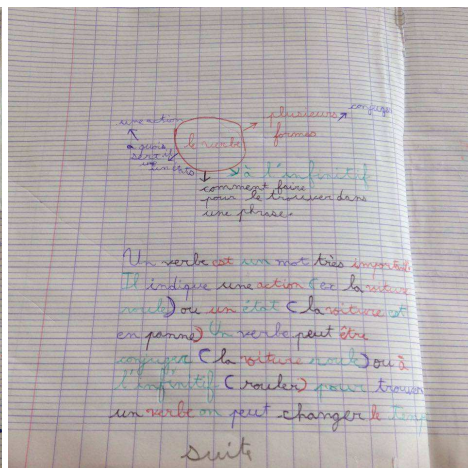 une action
plusieurs
conjuguer
formes
le verbe
à quoi
sert-il
un état
à l'infinitif
comment faire
pour le trouver dans
une phrase.
Un verbe est un mot très important
Il indique une action (ex la voiture
roule) ou un état (la voiture est
en panne) Un verbe peut être
conjuguer (la voiture roule) ou à
l'infinitif (rouler) pour trouver
un verbe on peut changer le temps
suite